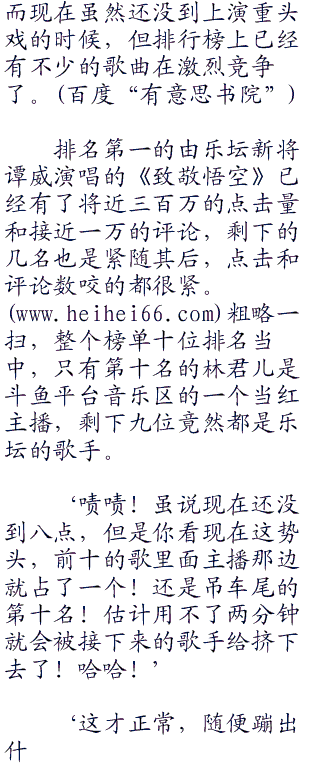 而现在虽然还没到上演重头
戏的时候，但排行榜上已经
有不少的歌曲在激烈竞争
了。(百度“有意思书院”)
排名第一的由乐坛新将
谭威演唱的《致敬悟空》已
经有了将近三百万的点击量
和接近一万的评论，剩下的
几名也是紧随其后，点击和
评论数咬的都很紧。
(www.heihei66.com)粗略一
扫，整个榜单十位排名当
中，只有第十名的林君儿是
斗鱼平台音乐区的一个当红
主播，剩下九位竟然都是乐
坛的歌手。
‘啧啧！虽说现在还没
到八点，但是你看现在这势
头，前十的歌里面主播那边
就占了一个！还是吊车尾的
第十名！估计用不了两分钟
就会被接下来的歌手给挤下
去了！哈哈！’
‘这才正常，随便蹦出
什